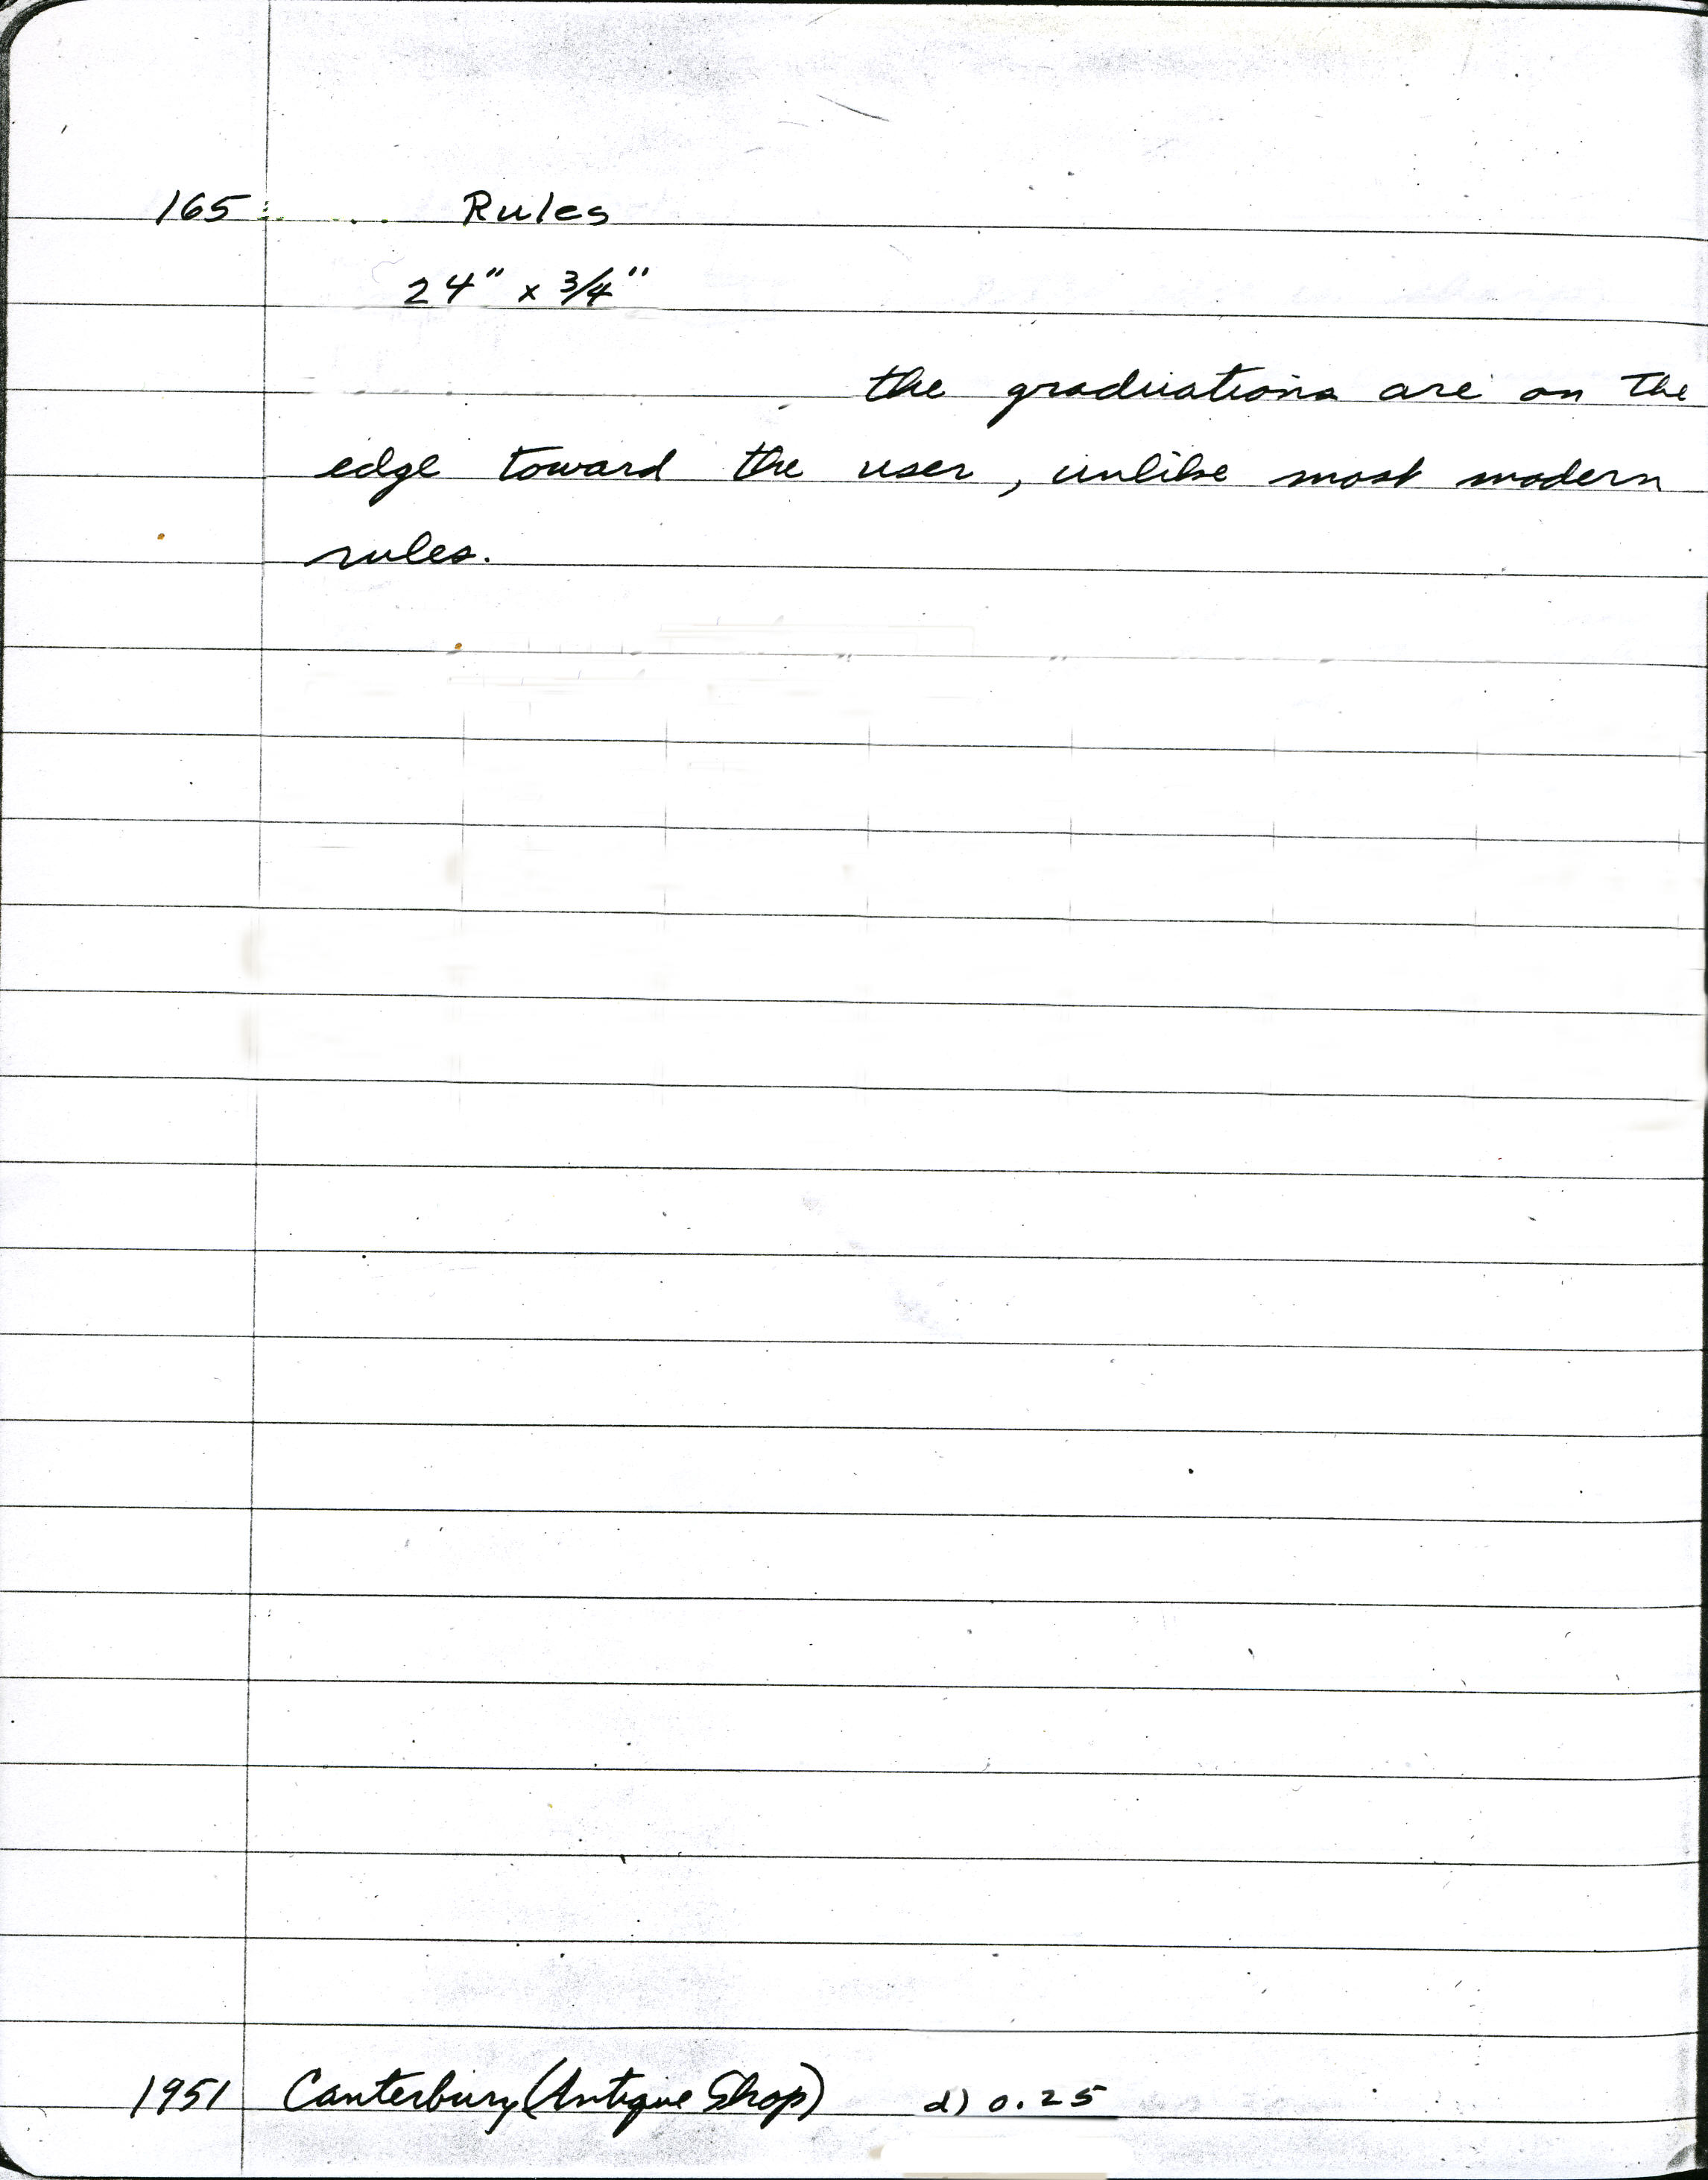 165 Rules
24" x 3/4"
the graduations are on the
edge toward the user, unlike most modern
rules.
1951 Canterbury (Antique Shop) d) 0.25